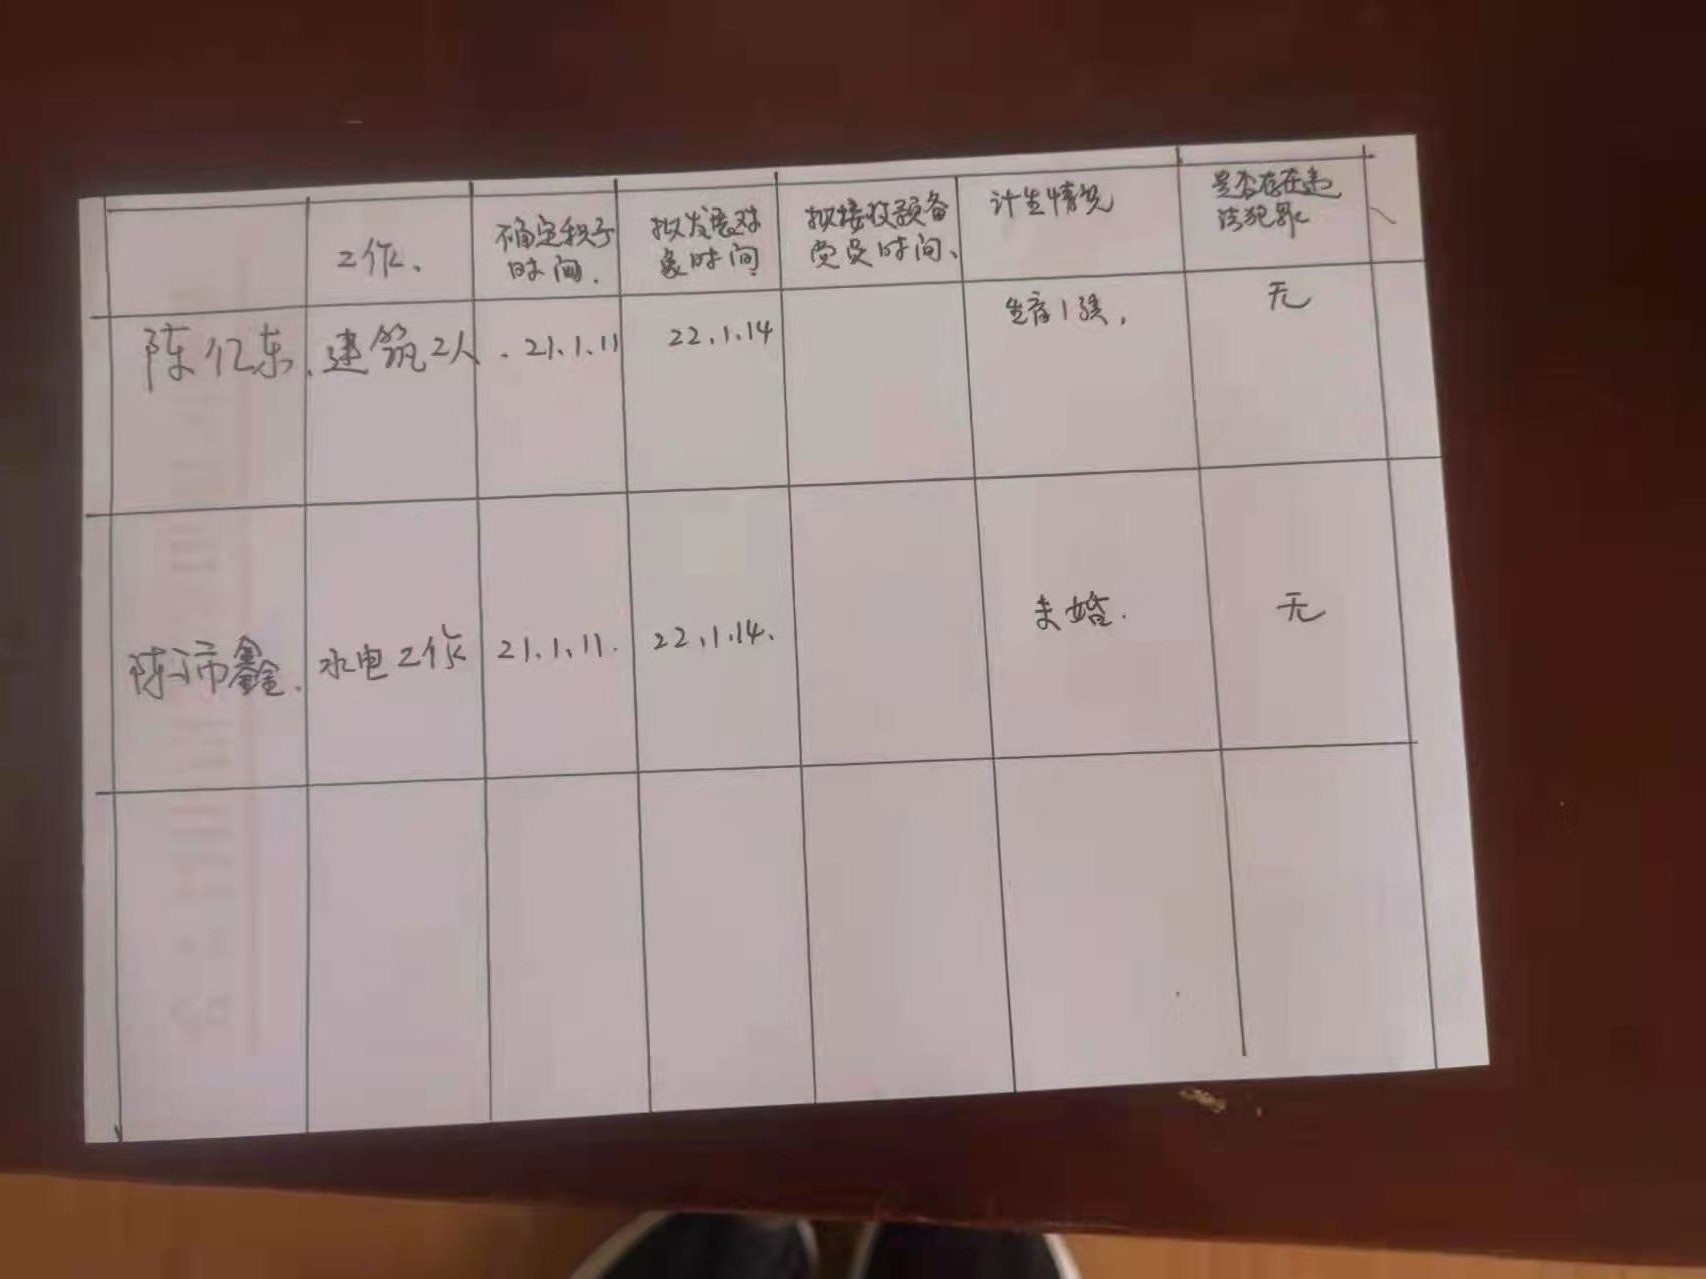 工作、
确定积子
时间.
拟发展对
象时间
拟接收预备
党员时间、
计生情况
是否存在违
法犯罪
陈亿东、
建筑工人
. 21.1.11
22.1.14
生育1孩,
无
陈沛鑫.
水电工作
21.1.11.
22.1.14.
未婚.
无